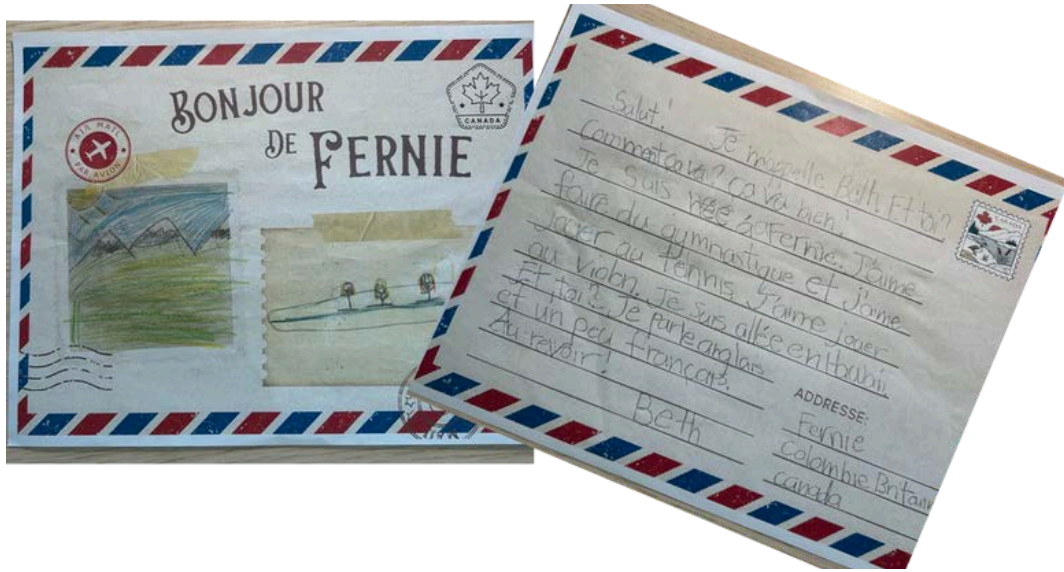 BONJOUR
DE FERNIE
AIR MAIL
PAR AVION
CANADA
Salut! Je m'appelle Beth. Et toi?
Comment ça va? ça va bien!
Je suis née à Fernie. J'aime
faire du gymnastique et j'aime
jouer au tennis. J'aime jouer
au violon. Je suis allée en Hawaii.
Et toi? Je parle anglais
et un peu français.
Au revoir!
Beth
CANADA
ADDRESSE:
Fernie
colombie Britann
canada